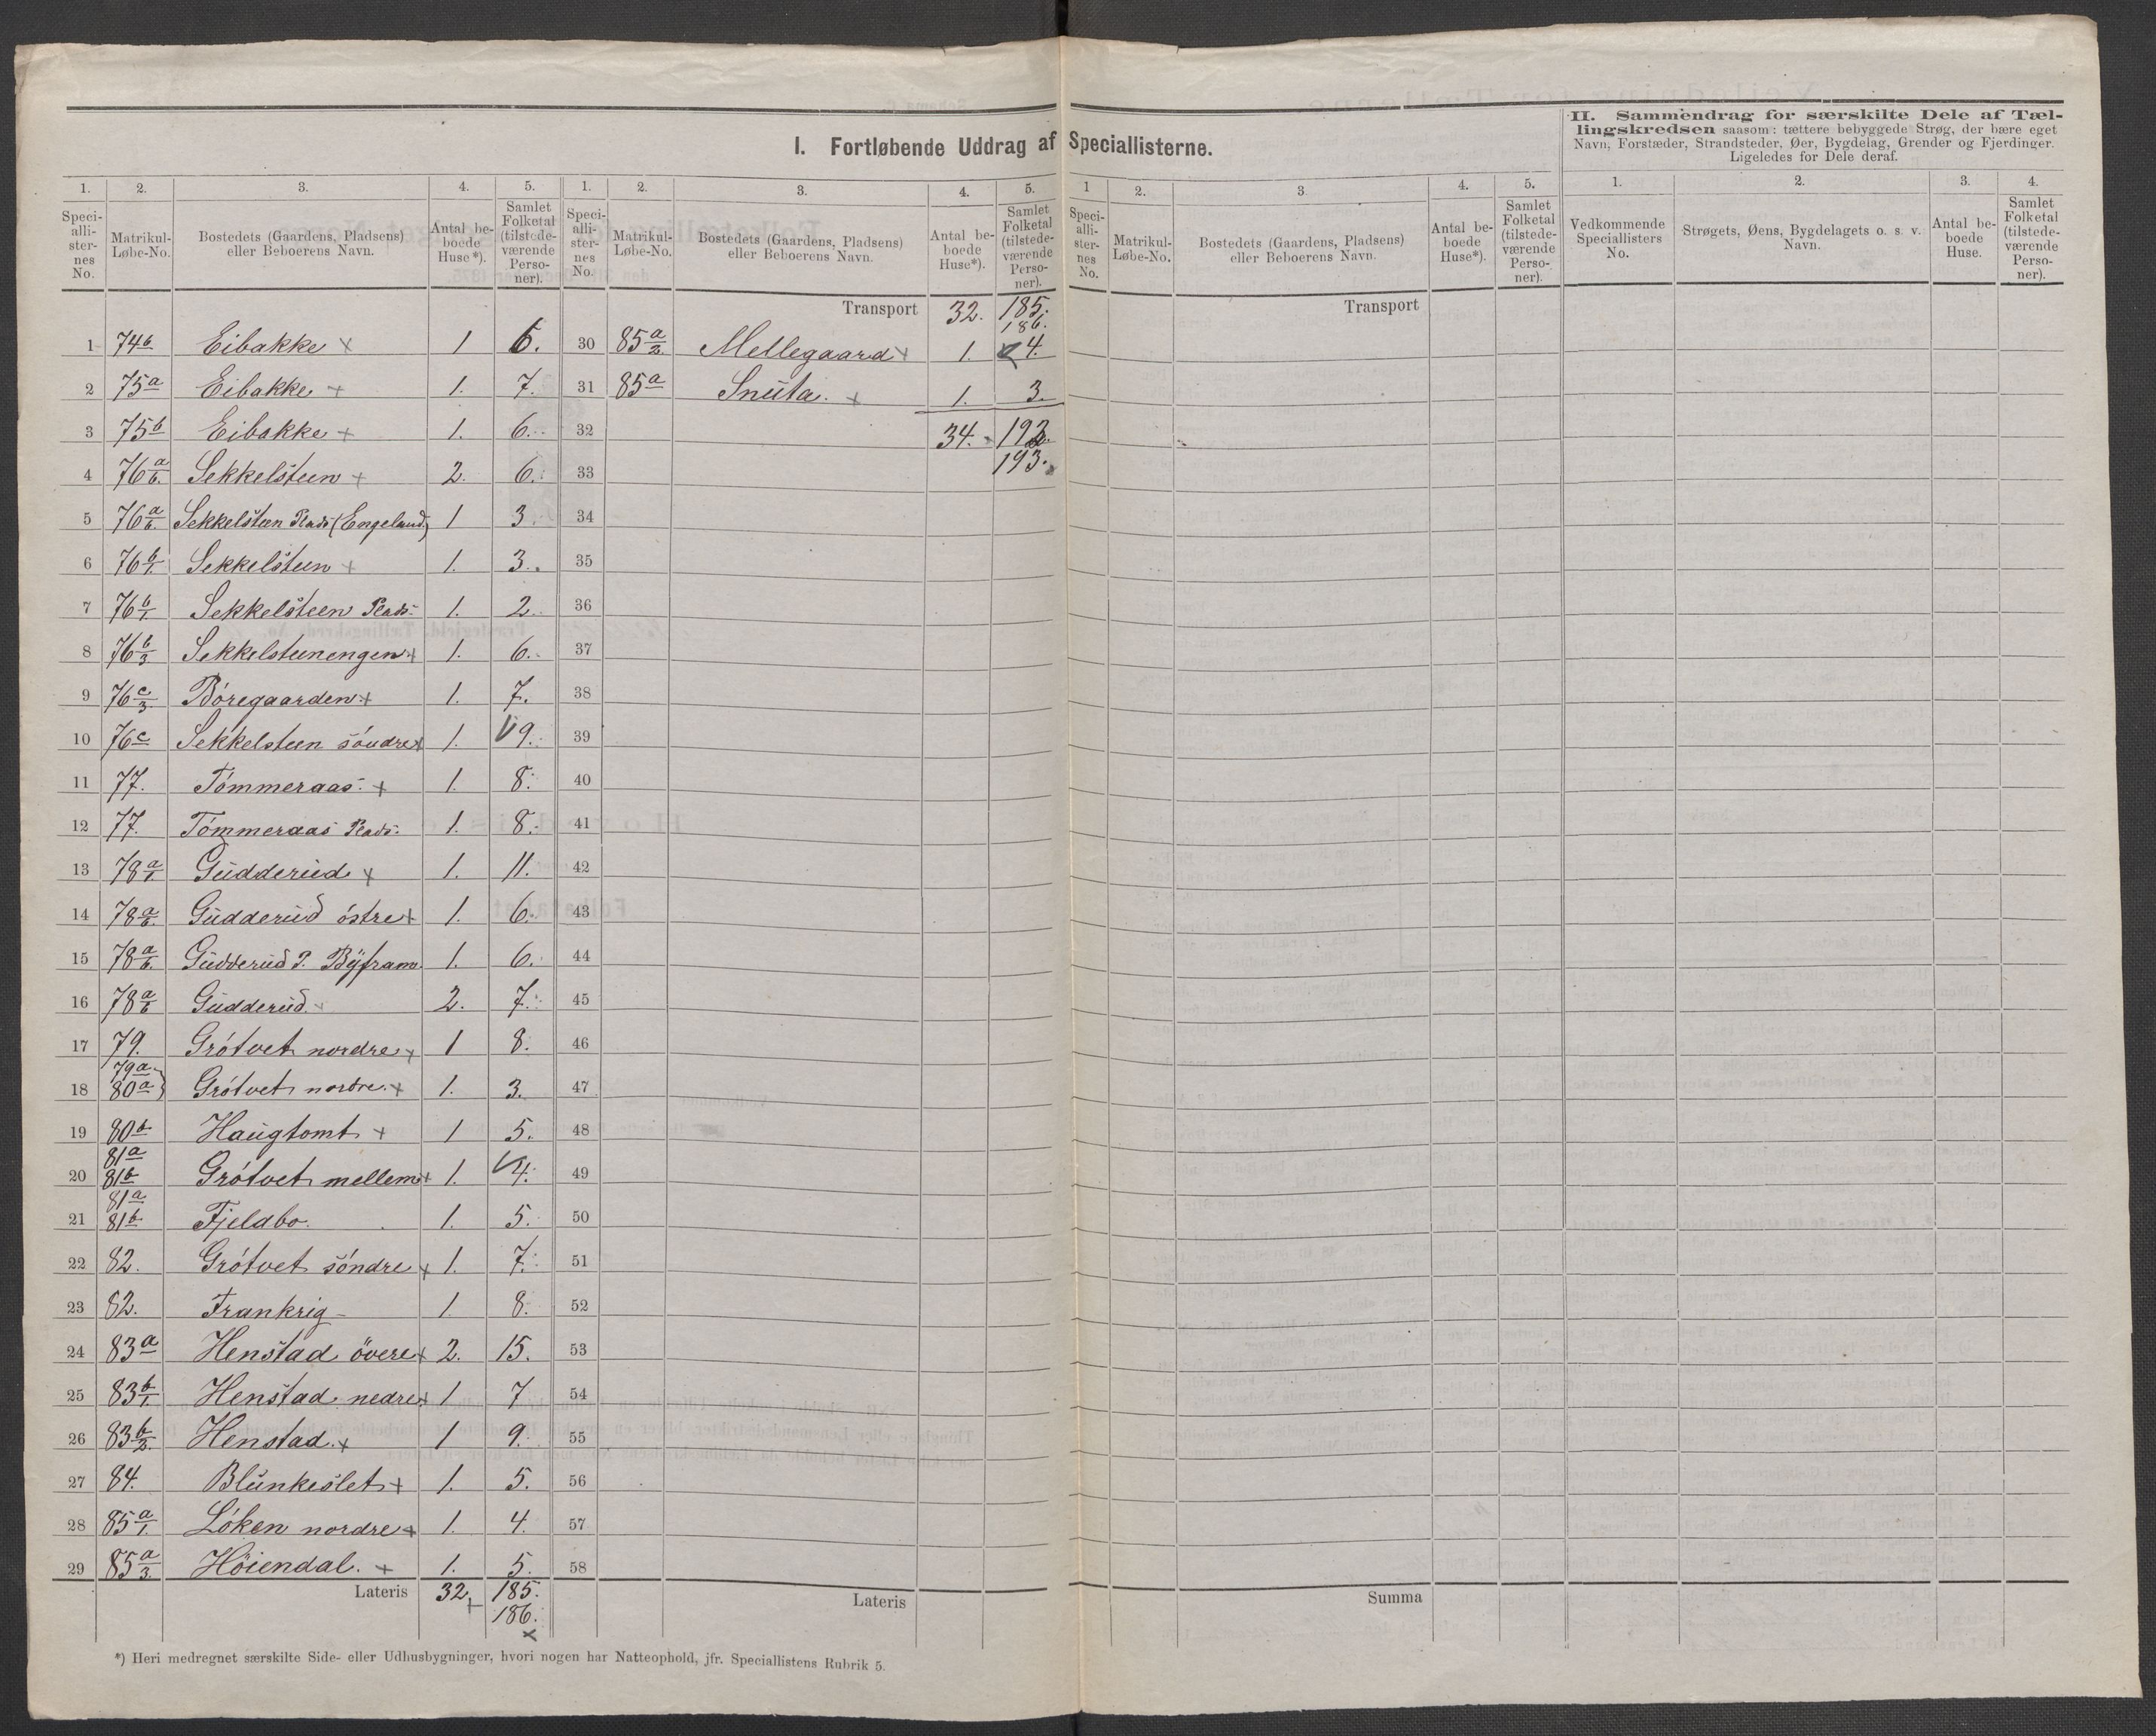 I. Fortløbende Uddrag af Speciallisterne.
II. Sammendrag for særskilte Dele af Tæl-
lingskredsen saasom: tættere bebyggede Strøg, der bære eget
Navn, Forstæder, Strandsteder, Øer, Bygdelag, Grender og Fjerdinger.
Ligeledes for Dele deraf.
1. 2. 3. 4. 5. 1. 2. 3. 4. 5. 1 2. 3 4. 5. 1. 2. 3. 4.
Speci-alli-ster-nes No. Matrikul-Løbe-No. Bostedets (Gaardens, Pladsens) eller Beboerens Navn. Antal be-boede Huse*). Samlet Folketal (tilstede-værende Perso-ner).
Speci-alli-ster-nes No. Matrikul-Løbe-No. Bostedets (Gaardens, Pladsens) eller Beboerens Navn. Antal be-boede Huse*). Samlet Folketal (tilstede-værende Perso-ner).
Speci-alli-ster-nes No. Matrikul-Løbe-No. Bostedets (Gaardens, Pladsens) eller Beboerens Navn. Antal be-boede Huse*). Samlet Folketal (tilstede-værende Perso-ner).
Vedkommende Speciallisters No. Strøgets, Øens, Bygdelagets o. s. v. Navn. Antal be-boede Huse. Samlet Folketal (tilstede-værende Perso-ner).
1 74b Eibakke x 1 6.
2 75a Eibakke + 1. 7.
3 75b Eibakke + 1. 6.
4 76a/b. Sekkelsteen + 2. 6.
5 76a/b. Sekkelsteen Plads (Engeland) 1 3
6 76b/1. Sekkelsteen + 1. 3.
7 76b/1. Sekkelsteen Plads 1. 2.
8 76b/3 Sekkelsteenengen + 1. 6.
9 76c/3 Böregaarden + 1. 7.
10 76c Sekkelsteen söndre x 1. 9.
11 77. Tömmeraas + 1. 8.
12 77. Tömmeraas Plads. 1. 8.
13 78a/1. Gudderud x 1. 11.
14 78a/b. Gudderud östre + 1. 6.
15 78a/b. Gudderud P. Byfram 1. 6.
16 78a/b Gudderud 2. 7.
17 79. Grötvet nordre x 1 8.
18 79a 80a } Grötvet nordre. x 1. 3.
19 80b Haugtomt + 1 5.
20 81a 81b Grötvet mellem + 1. 4.
21 81a 81b Fjeldbo. 1. 5.
22 82. Grötvet söndre x 1. 7.
23 82. Frankrig 1. 8.
24 83a Henstad övere x 2. 15.
25 83b/1. Henstad nedre x 1 7
26 83b/2. Henstad. x 1 9.
27 84. Blunkeslet + 1. 5.
28 85a/1. Löken nordre + 1. 4.
29 85a/3. Höiendal. + 1. 5.
Lateris 32 + 185.
186.
x
Transport 32. 185.
186.
30 85a/2. Mellegaard x 1. 4.
31 85a Snuta. + 1. 3.
32 34. 192.
33 193.
34
35
36
37
38
39
40
41
42
43
44
45
46
47
48
49
50
51
52
53
54
55
56
57
58
Lateris
Transport
Summa
*) Heri medregnet særskilte Side- eller Udhusbygninger, hvori nogen har Natteophold, jfr. Speciallistens Rubrik 5.